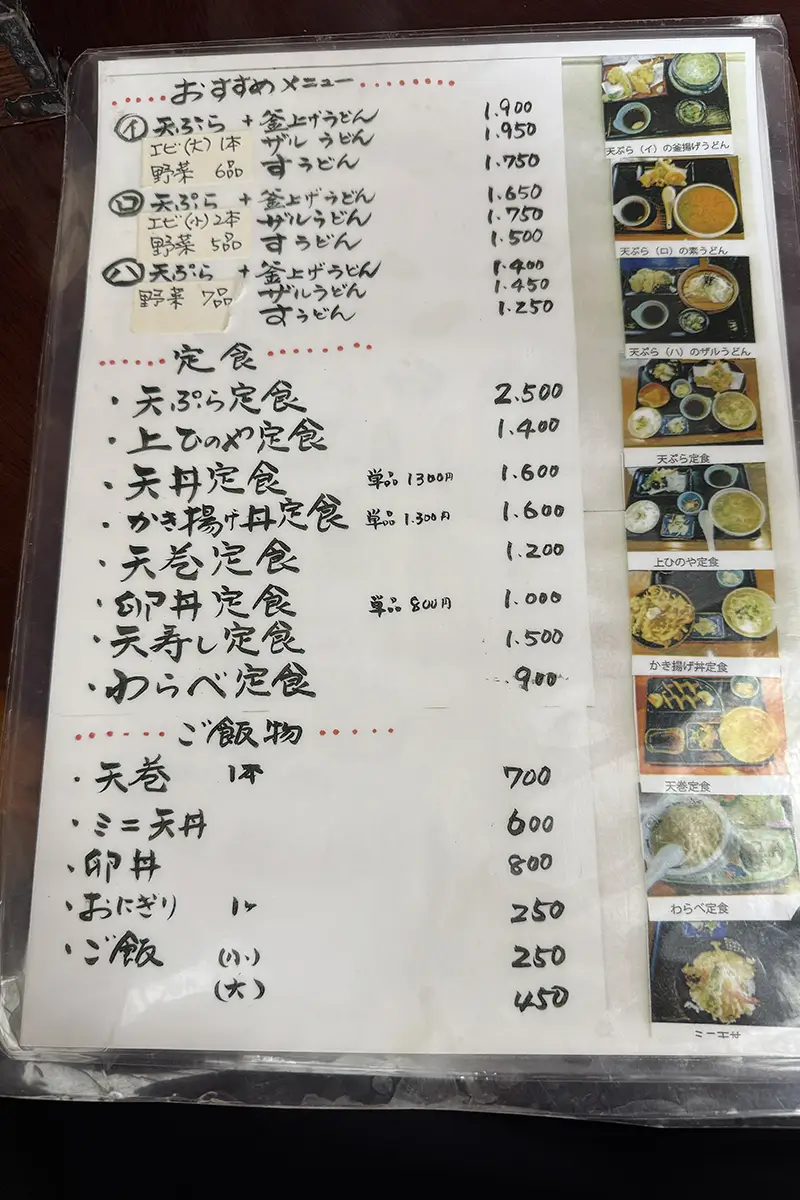 おすすめメニュー
イ 天ぷら + 釜上げうどん 1.900
エビ(大) 1本 ザルうどん 1.950
野菜 6品 すうどん 1.750
ロ 天ぷら + 釜上げうどん 1.650
エビ(小) 2本 ザルうどん 1.750
野菜 5品 すうどん 1.500
ハ 天ぷら + 釜上げうどん 1.400
野菜 7品 ザルうどん 1.450
すうどん 1.250
定食
・天ぷら定食 2.500
・上ひのや定食 1.400
・天丼定食 単品 1300円 1.600
・かき揚げ丼定食 単品 1.300円 1.600
・天巻定食 1.200
・卵丼定食 単品 800円 1.000
・天寿し定食 1.500
・わらべ定食 900
ご飯物
・天巻 1本 700
・ミニ天丼 600
・卵丼 800
・おにぎり 1ヶ 250
・ご飯 (小) 250
(大) 450
天ぷら（イ）の釜揚げうどん
天ぷら（ロ）の素うどん
天ぷら（ハ）のザルうどん
天ぷら定食
上ひのや定食
かき揚げ丼定食
天巻定食
わらべ定食
ミニ天丼